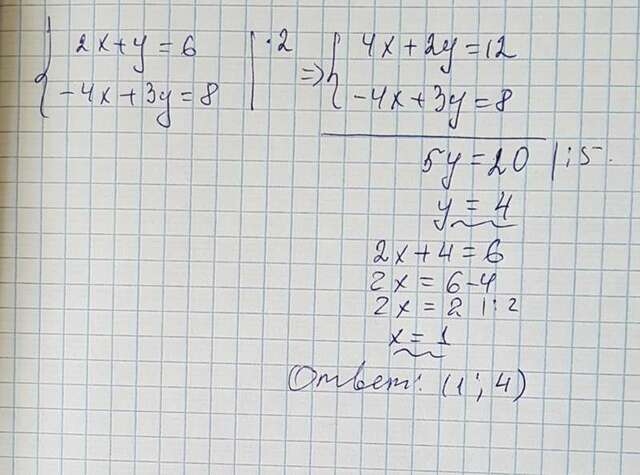 2x+y=6 |·2 => 4x+2y=12
-4x+3y=8 | -4x+3y=8
5y=20 |:5.
y=4
2x+4=6
2x=6-4
2x=2 |:2
x=1
Ответ: (1; 4)